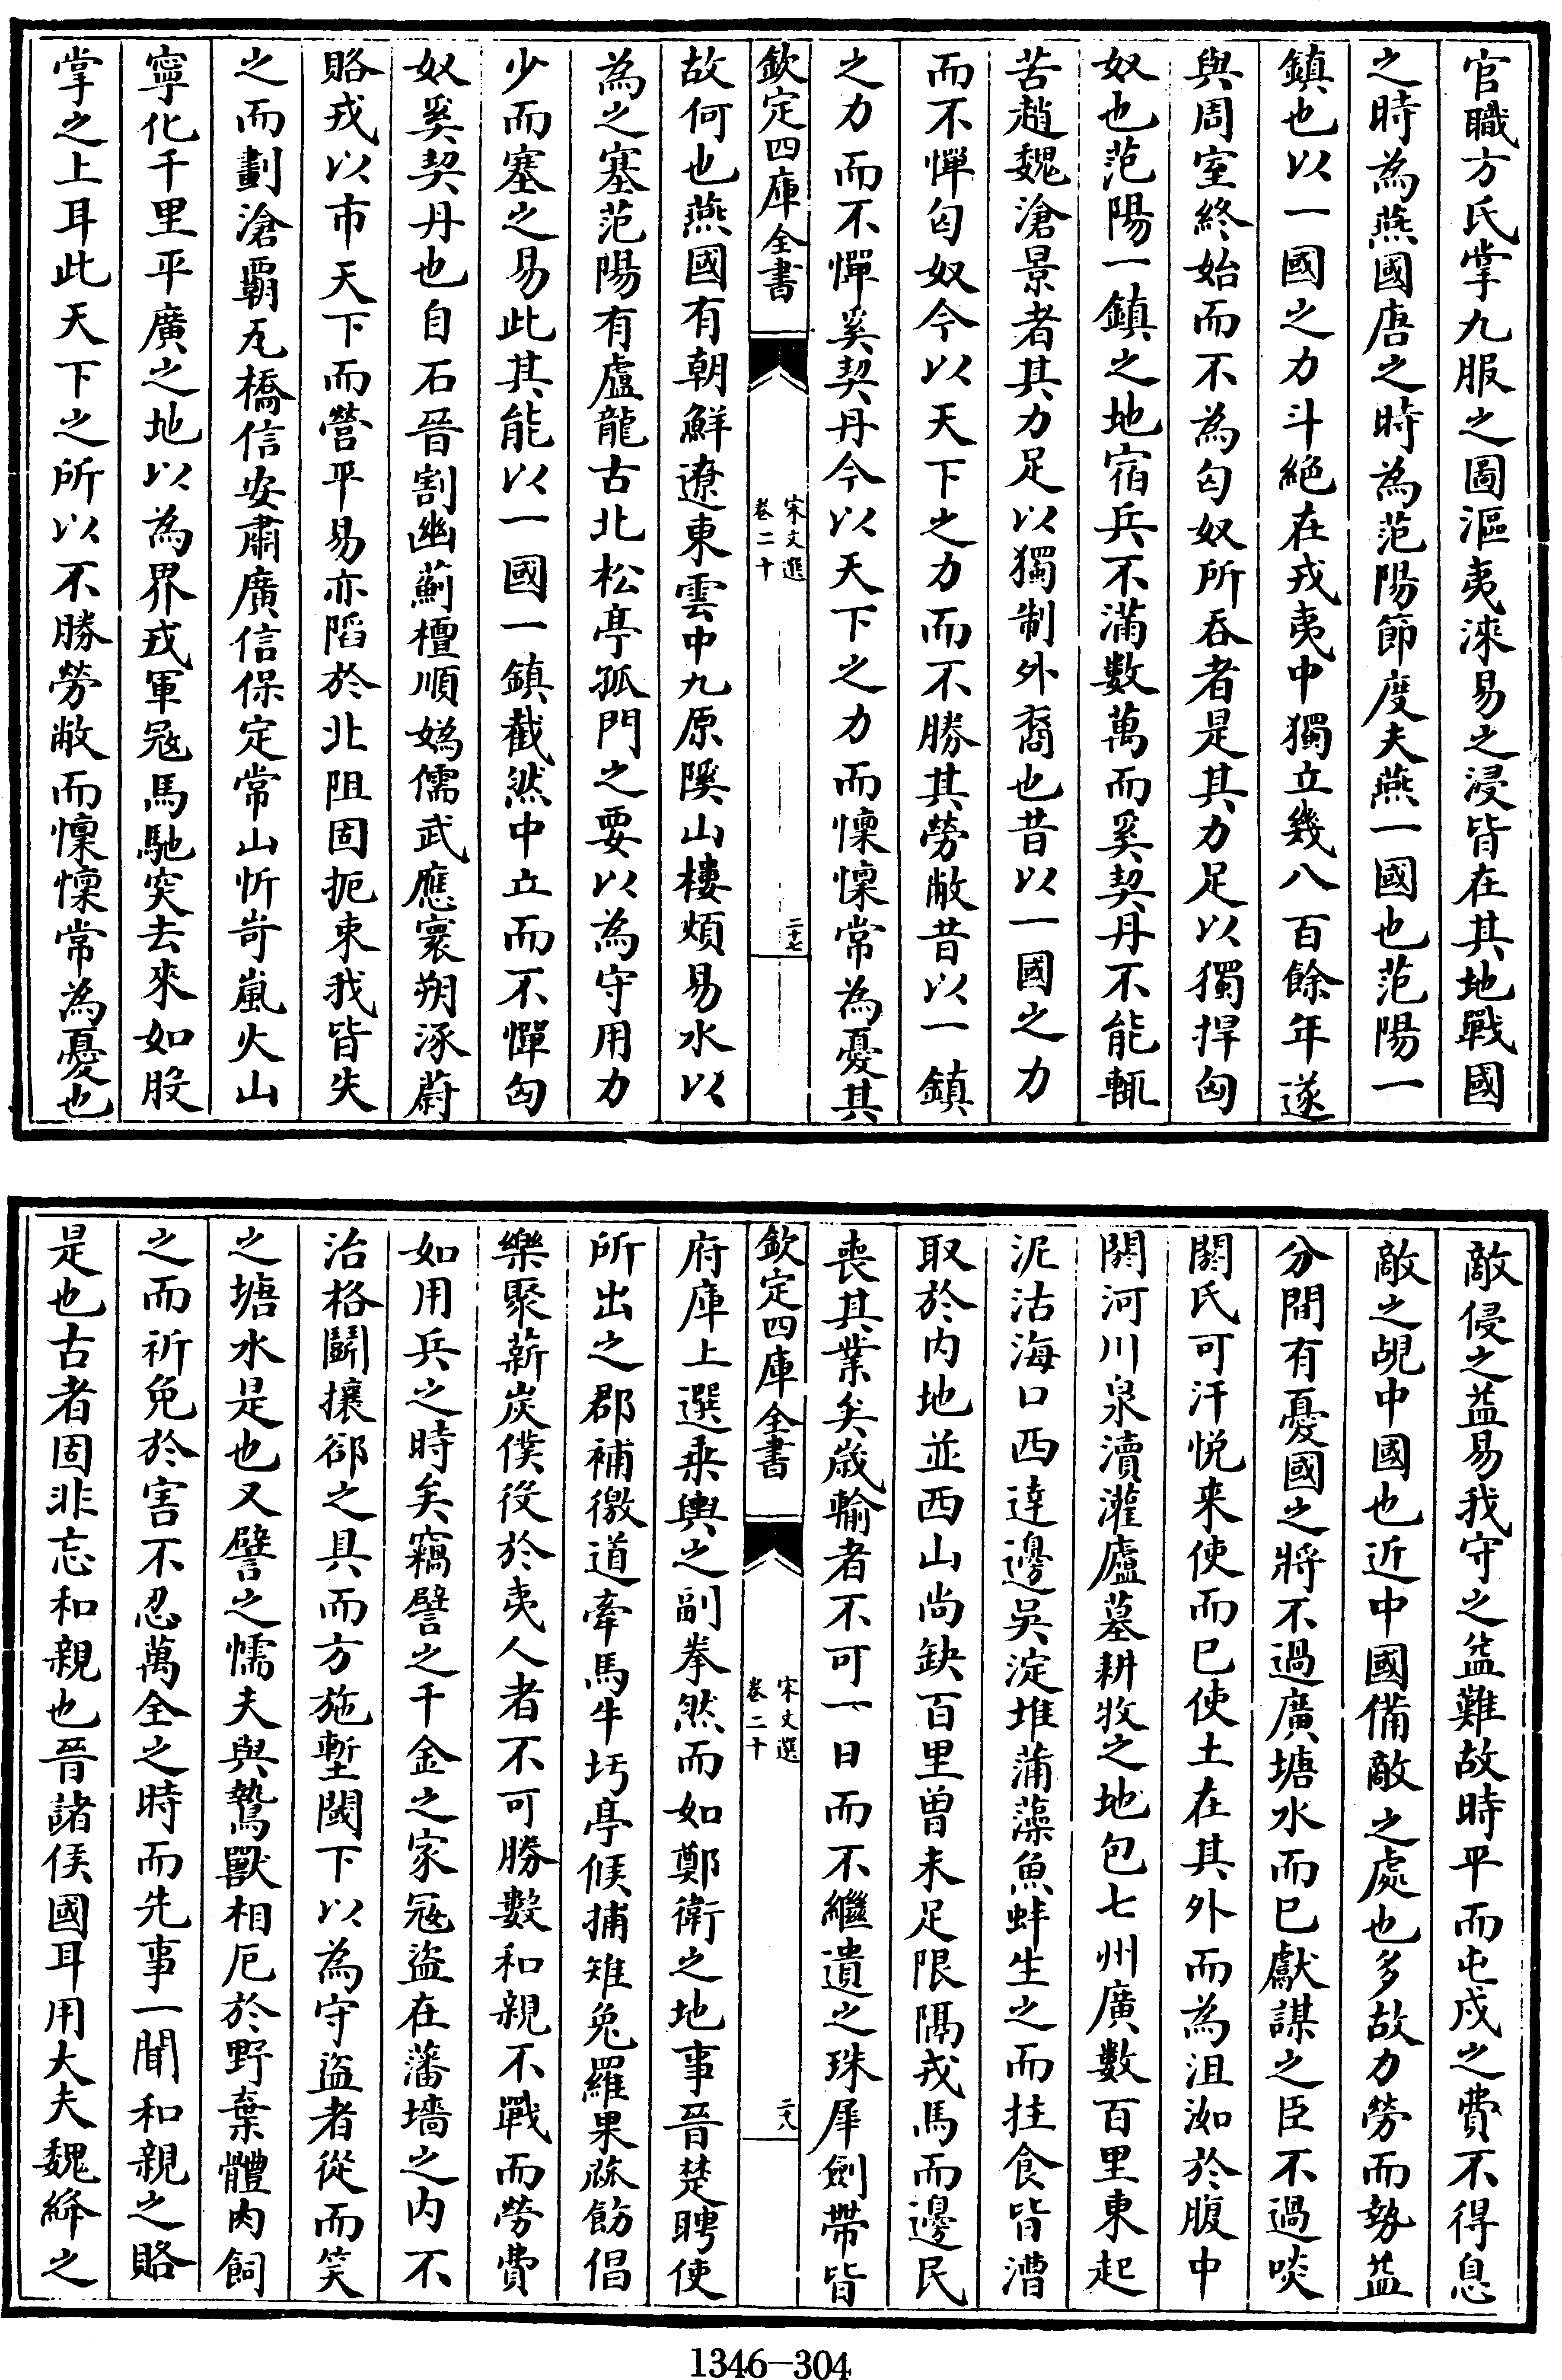 官職方氏掌九服之圖漚夷淶易之浸皆在其地戰國
之時為燕國唐之時為范陽節度夫燕一國也范陽一
鎮也以一國之力斗絕在戎夷中獨立幾八百餘年遂
與周室終始而不為匈奴所吞者是其力足以獨捍匈
奴也范陽一鎮之地宿兵不滿數萬而奚契丹不能輒
苦趙魏滄景者其力足以獨制外裔也昔以一國之力
而不憚匈奴今以天下之力而不勝其勞敝昔以一鎮
之力而不憚奚契丹今以天下之力而懍懍常為憂其
欽定四庫全書
宋文選
卷二十
二十七
故何也燕國有朝鮮遼東雲中九原隩山樓煩易水以
為之塞范陽有盧龍古北松亭孤門之要以為守用力
少而塞之易此其能以一國一鎮截然中立而不憚匈
奴奚契丹也自石晉割幽薊檀順媯儒武應寰朔涿蔚
賂戎以市天下而營平易亦陷於北阻固扼束我皆失
之而劃滄覇瓦橋信安肅廣信保定常山忻岢嵐火山
寧化千里平廣之地以為界戎軍冦馬馳突去來如股
掌之上耳此天下之所以不勝勞敝而懍懍常為憂也
敵侵之益易我守之益難故時平而屯戍之費不得息
敵之覘中國也近中國備敵之處也多故力勞而勢益
分間有憂國之將不過廣塘水而已獻謀之臣不過啖
閼氏可汗悅来使而已使土在其外而為沮洳於腹中
闕河川泉瀆灌廬墓耕牧之地包七州廣數百里東起
泥沽海口西達邊吳淀堆蒲藻魚蚌生之而挂食皆漕
取於内地並西山尚缺百里曽未足限隔戎馬而邊民
喪其業矣歲輸者不可一日而不繼遺之珠犀劍帶皆
欽定四庫全書
宋文選
卷二十
二十八
府庫上選乗輿之副拳然而如鄭衛之地事晉楚聘使
所出之郡補徼道牽馬牛圬亭候捕雉兔羅果疏飭倡
樂聚薪炭僕役於夷人者不可勝數和親不戰而勞費
如用兵之時矣竊譬之千金之家冦盜在藩墻之内不
治格鬭攘郤之具而方施塹閾下以為守盜者從而笑
之塘水是也又譬之懦夫與鷙獸相厄於野棄體肉飼
之而祈免於害不忍萬全之時而先事一聞和親之賂
是也古者固非忘和親也晉諸侯國耳用大夫魏絳之
1346-304